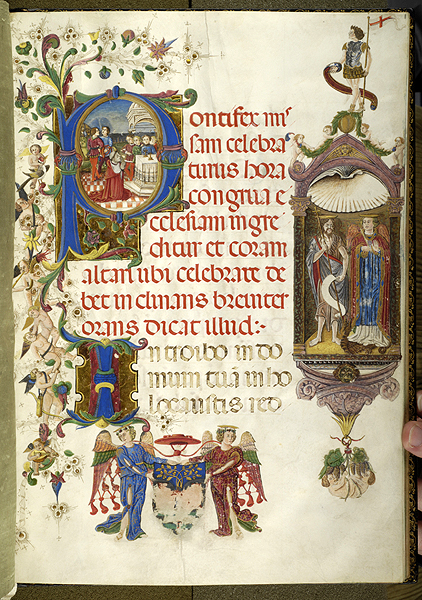 Pontifex mis
sam celebra
turus hora
congrua e
cclesiam ingre
ditur et coram
altari ubi celebrare de
bet inclinans breviter
orans dicat illud:-
Introibo in do
mum tuā in ho
locaustis red